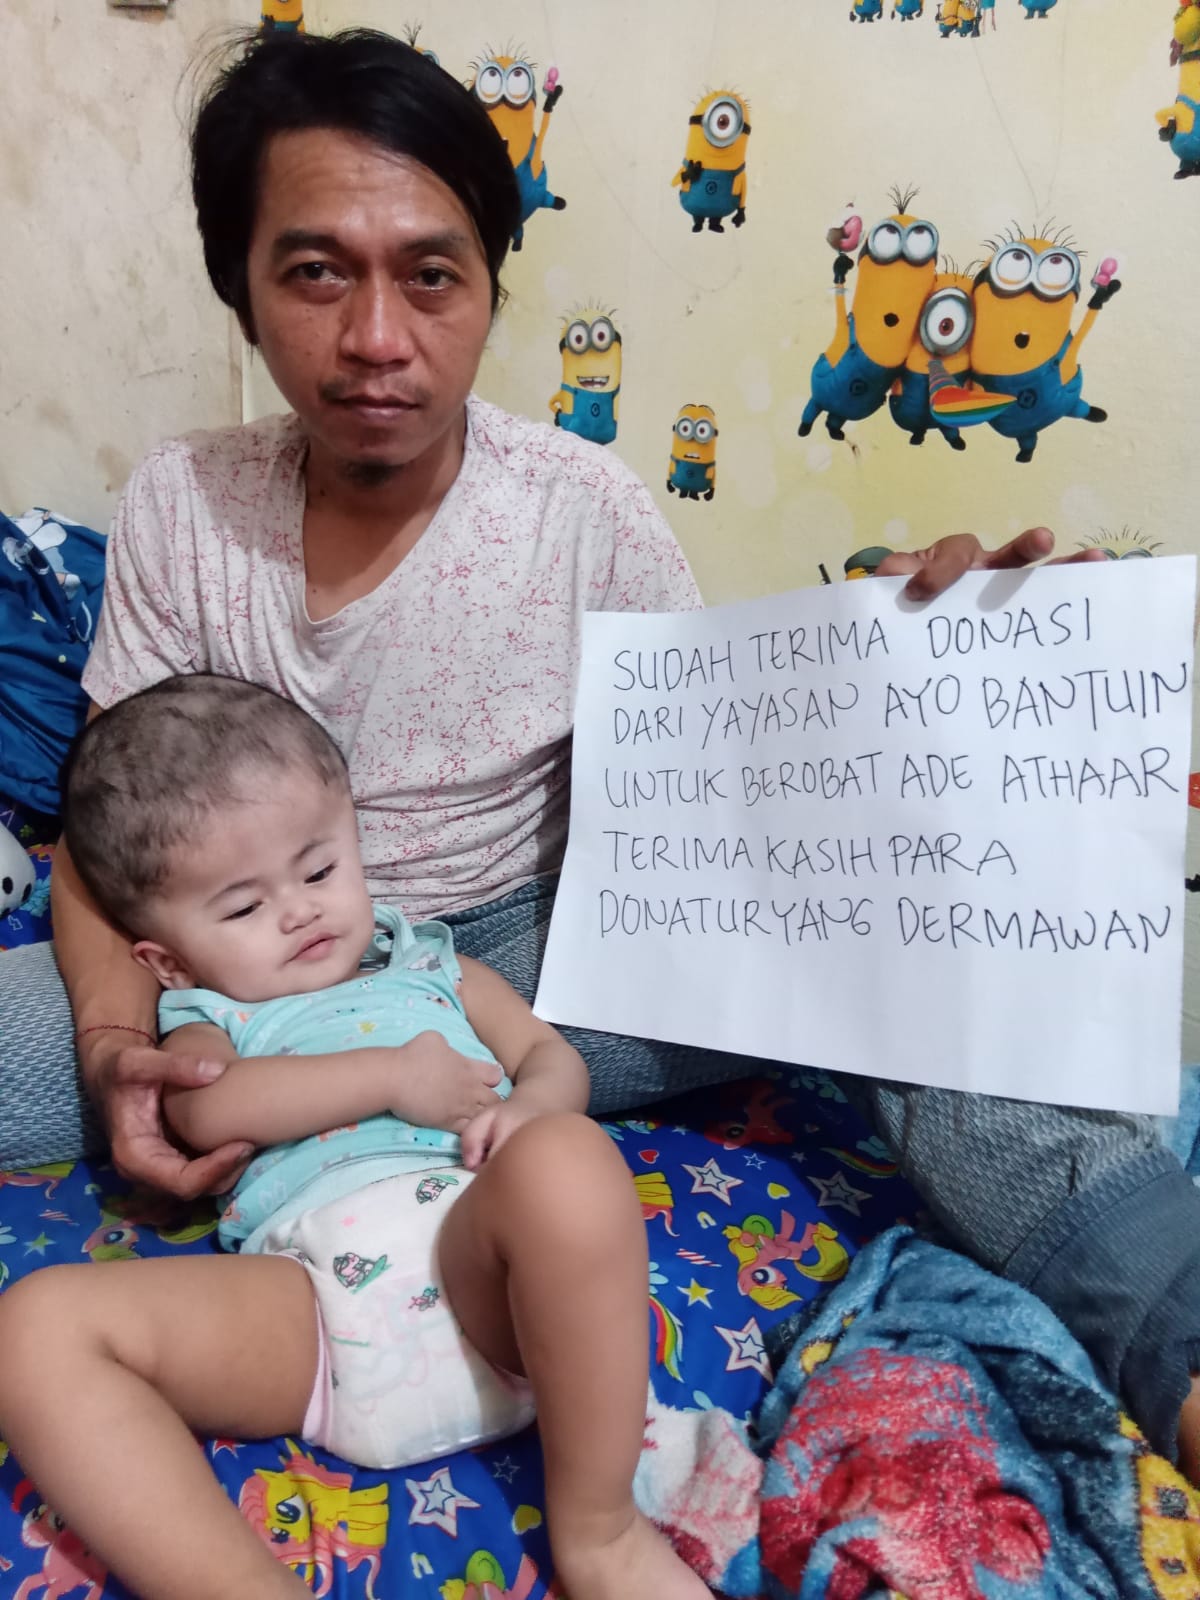 SUDAH TERIMA DONASI
DARI YAYASAN AYO BANTUIN
UNTUK BEROBAT ADE ATHAAR
TERIMA KASIH PARA
DONATUR YANG DERMAWAN